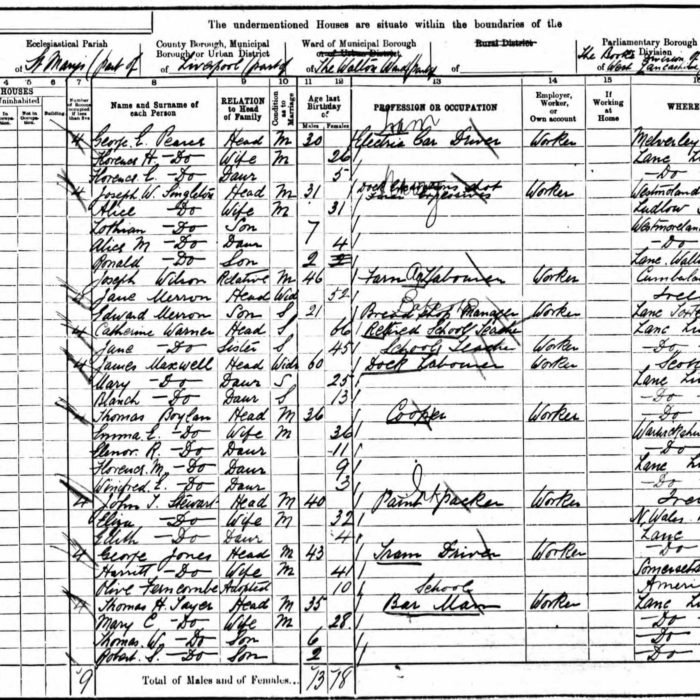 The undermentioned Houses are situate within the boundaries of the
Ecclesiastical Parish
of St Marys (part of
County Borough, Municipal Borough or Urban District
of Liverpool (part of
Ward of Municipal Borough or Urban District
of The Walton Ward (part of
Rural District
of
Parliamentary Borough
Division
The Bootle Division of
of West Lancashire
4 5 6 7 8 9 10 11 12 13 14 15 16
HOUSES
Uninhabited
Building
Name and Surname of each Person
RELATION to Head of Family
Condition as to Marriage
Age last Birthday of
Males Females
PROFESSION OR OCCUPATION
Employer, Worker, or Own account
If Working at Home
WHERE
4 George E. Pearce Head M 30 Tram Electric Car Driver Worker Melverley
Florence H. -Do- Wife M 26 Lanc
Florence E. -Do- Daur 5 -Do-
4 Joseph W. Singleton Head M 31 Dock Worker Westmorland
Alice -Do- Wife M 31 Ludlow
Lothian -Do- Son 7 Westmoreland
Alice M -Do- Daur 4 -Do-
Ronald -Do- Son 2 Lanc. Walton
Joseph Wilson Relative M 46 Farm Labourer Worker Cumberland
4 Jane Merron Head Wid 52
Edward Merron Son S 21 Bread Shop Manager Worker Lanc
4 Catherine Warner Head S 66 Retired School Teacher Lanc
Jane -Do- Sister S 45 School Teacher Worker -Do-
4 James Maxwell Head Widr 60 Dock Labourer Worker
Mary -Do- Daur S 25 Lanc
Blanch -Do- Daur S 13 -Do-
Thomas Boylan Head M 36 Cooper Worker -Do-
Emma E. -Do- Wife M 36
Elenor R. -Do- Daur 11 -Do-
Florence M. -Do- Daur 9 Lanc
Winifred E. -Do- Daur 3 -Do-
4 John T. Stewart Head M 40 Paint packer Worker
Eliza -Do- Wife M 32 N. Wales
Edith -Do- Daur 4 Lanc
4 George Jones Head M 43 Tram Driver Worker -Do-
Harriett -Do- Wife M 41
Olive Ferncombe Adopted 10 School
4 Thomas H. Sayer Head M 35 Bar Man Worker Lanc
Mary E -Do- Wife M 28 -Do-
Thomas W. -Do- Son 6 -Do-
Robert S. -Do- Son 2 -Do-
9 Total of Males and of Females... 13 18